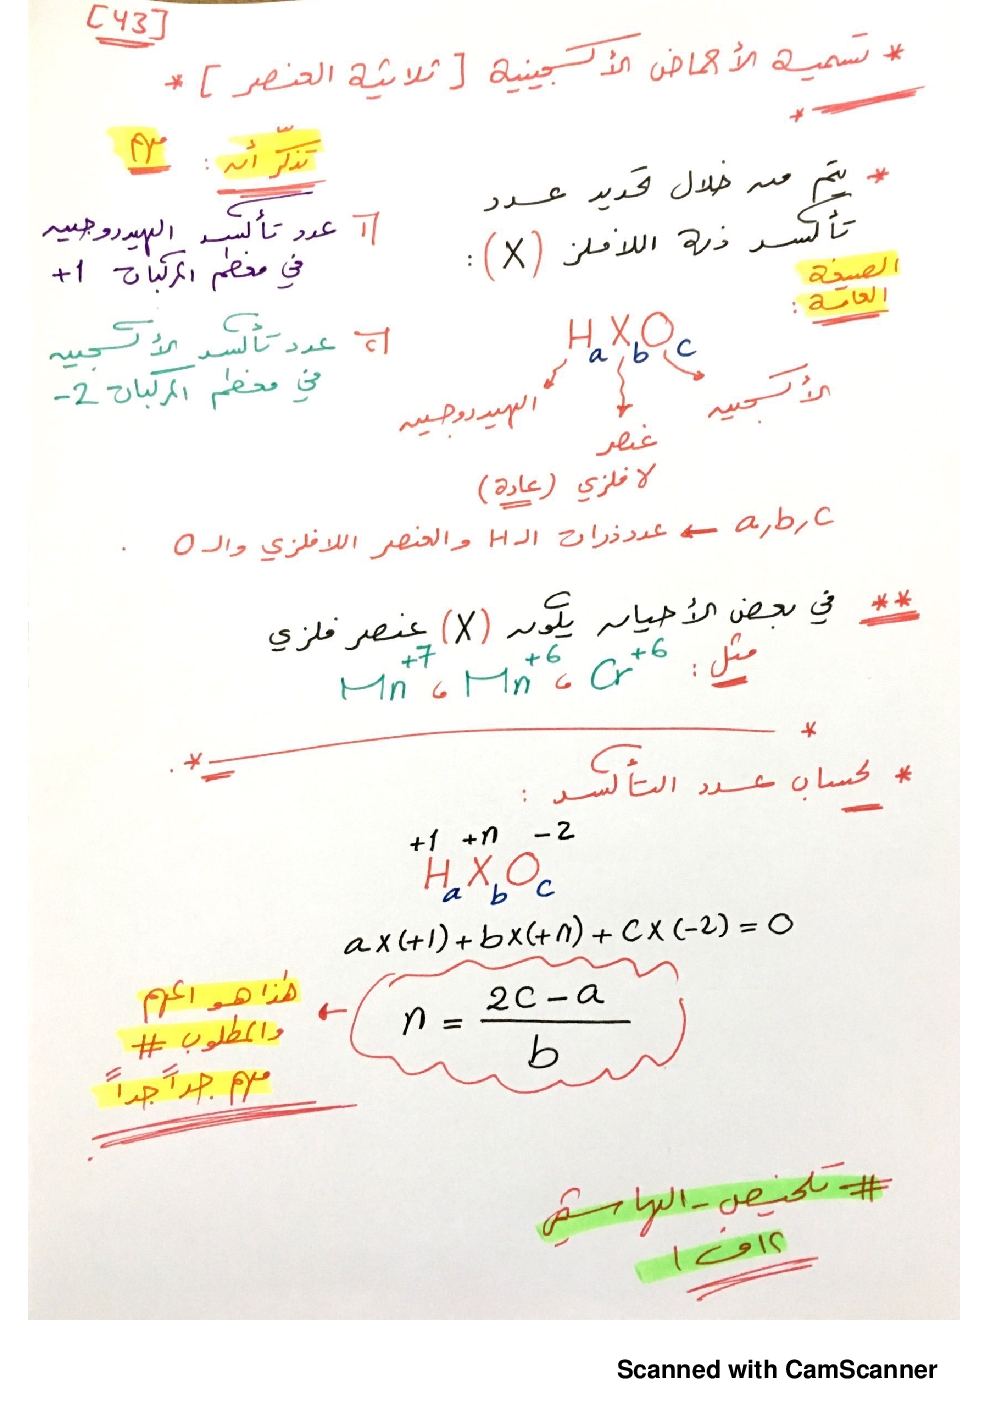 [43]
* تسمية الأحماض الأكسجينية [ ثلاثية العنصر ] *
* يتم من خلال تحديد عدد
تأكسد ذرة اللافلز (X) :
تذكّر أن : مهم
1 عدد تأكسد الهيدروجين
في معظم المركبات +1
2 عدد تأكسد الأكسجين
في معظم المركبات -2
الصيغة
العامة :
HaXbOc
الهيدروجين
الأكسجين
عنصر
لا فلزي (عادة)
a, b, c ← عدد ذرات الـ H والعنصر اللافلزي والـ O .
** في بعض الأحيان يكون (X) عنصر فلزي
مثل : Cr+6 ، Mn+6 ، Mn+7
* لحساب عدد التأكسد :
+1 +n -2
HaXbOc
a×(+1)+b×(+n)+c×(-2)=0
n = (2c-a)/b
← هذا هو المهم
والمطلوب #
مهم جداً جداً
# تلخيص-الهاشمي
Scanned with CamScanner